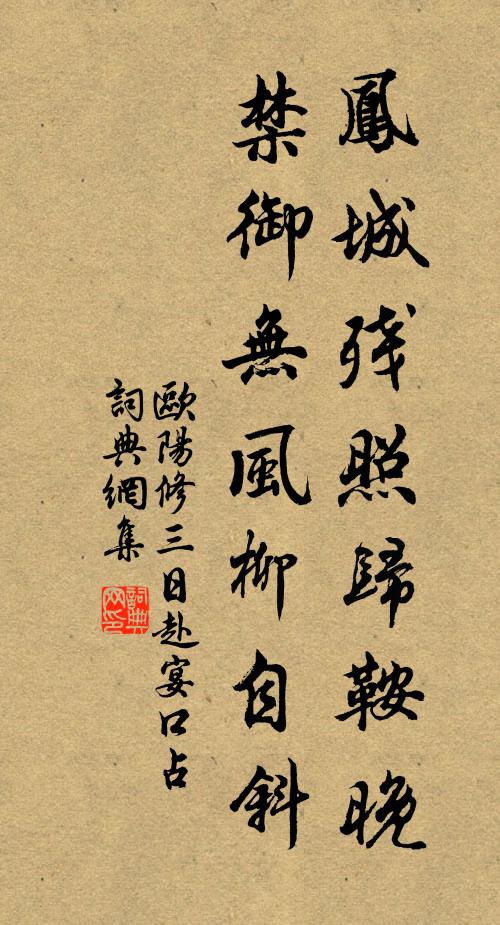 鳳城残照歸鞍晚
禁御無風柳自斜
歐陽修三日赴宴口占
詞典網集
詞典网印